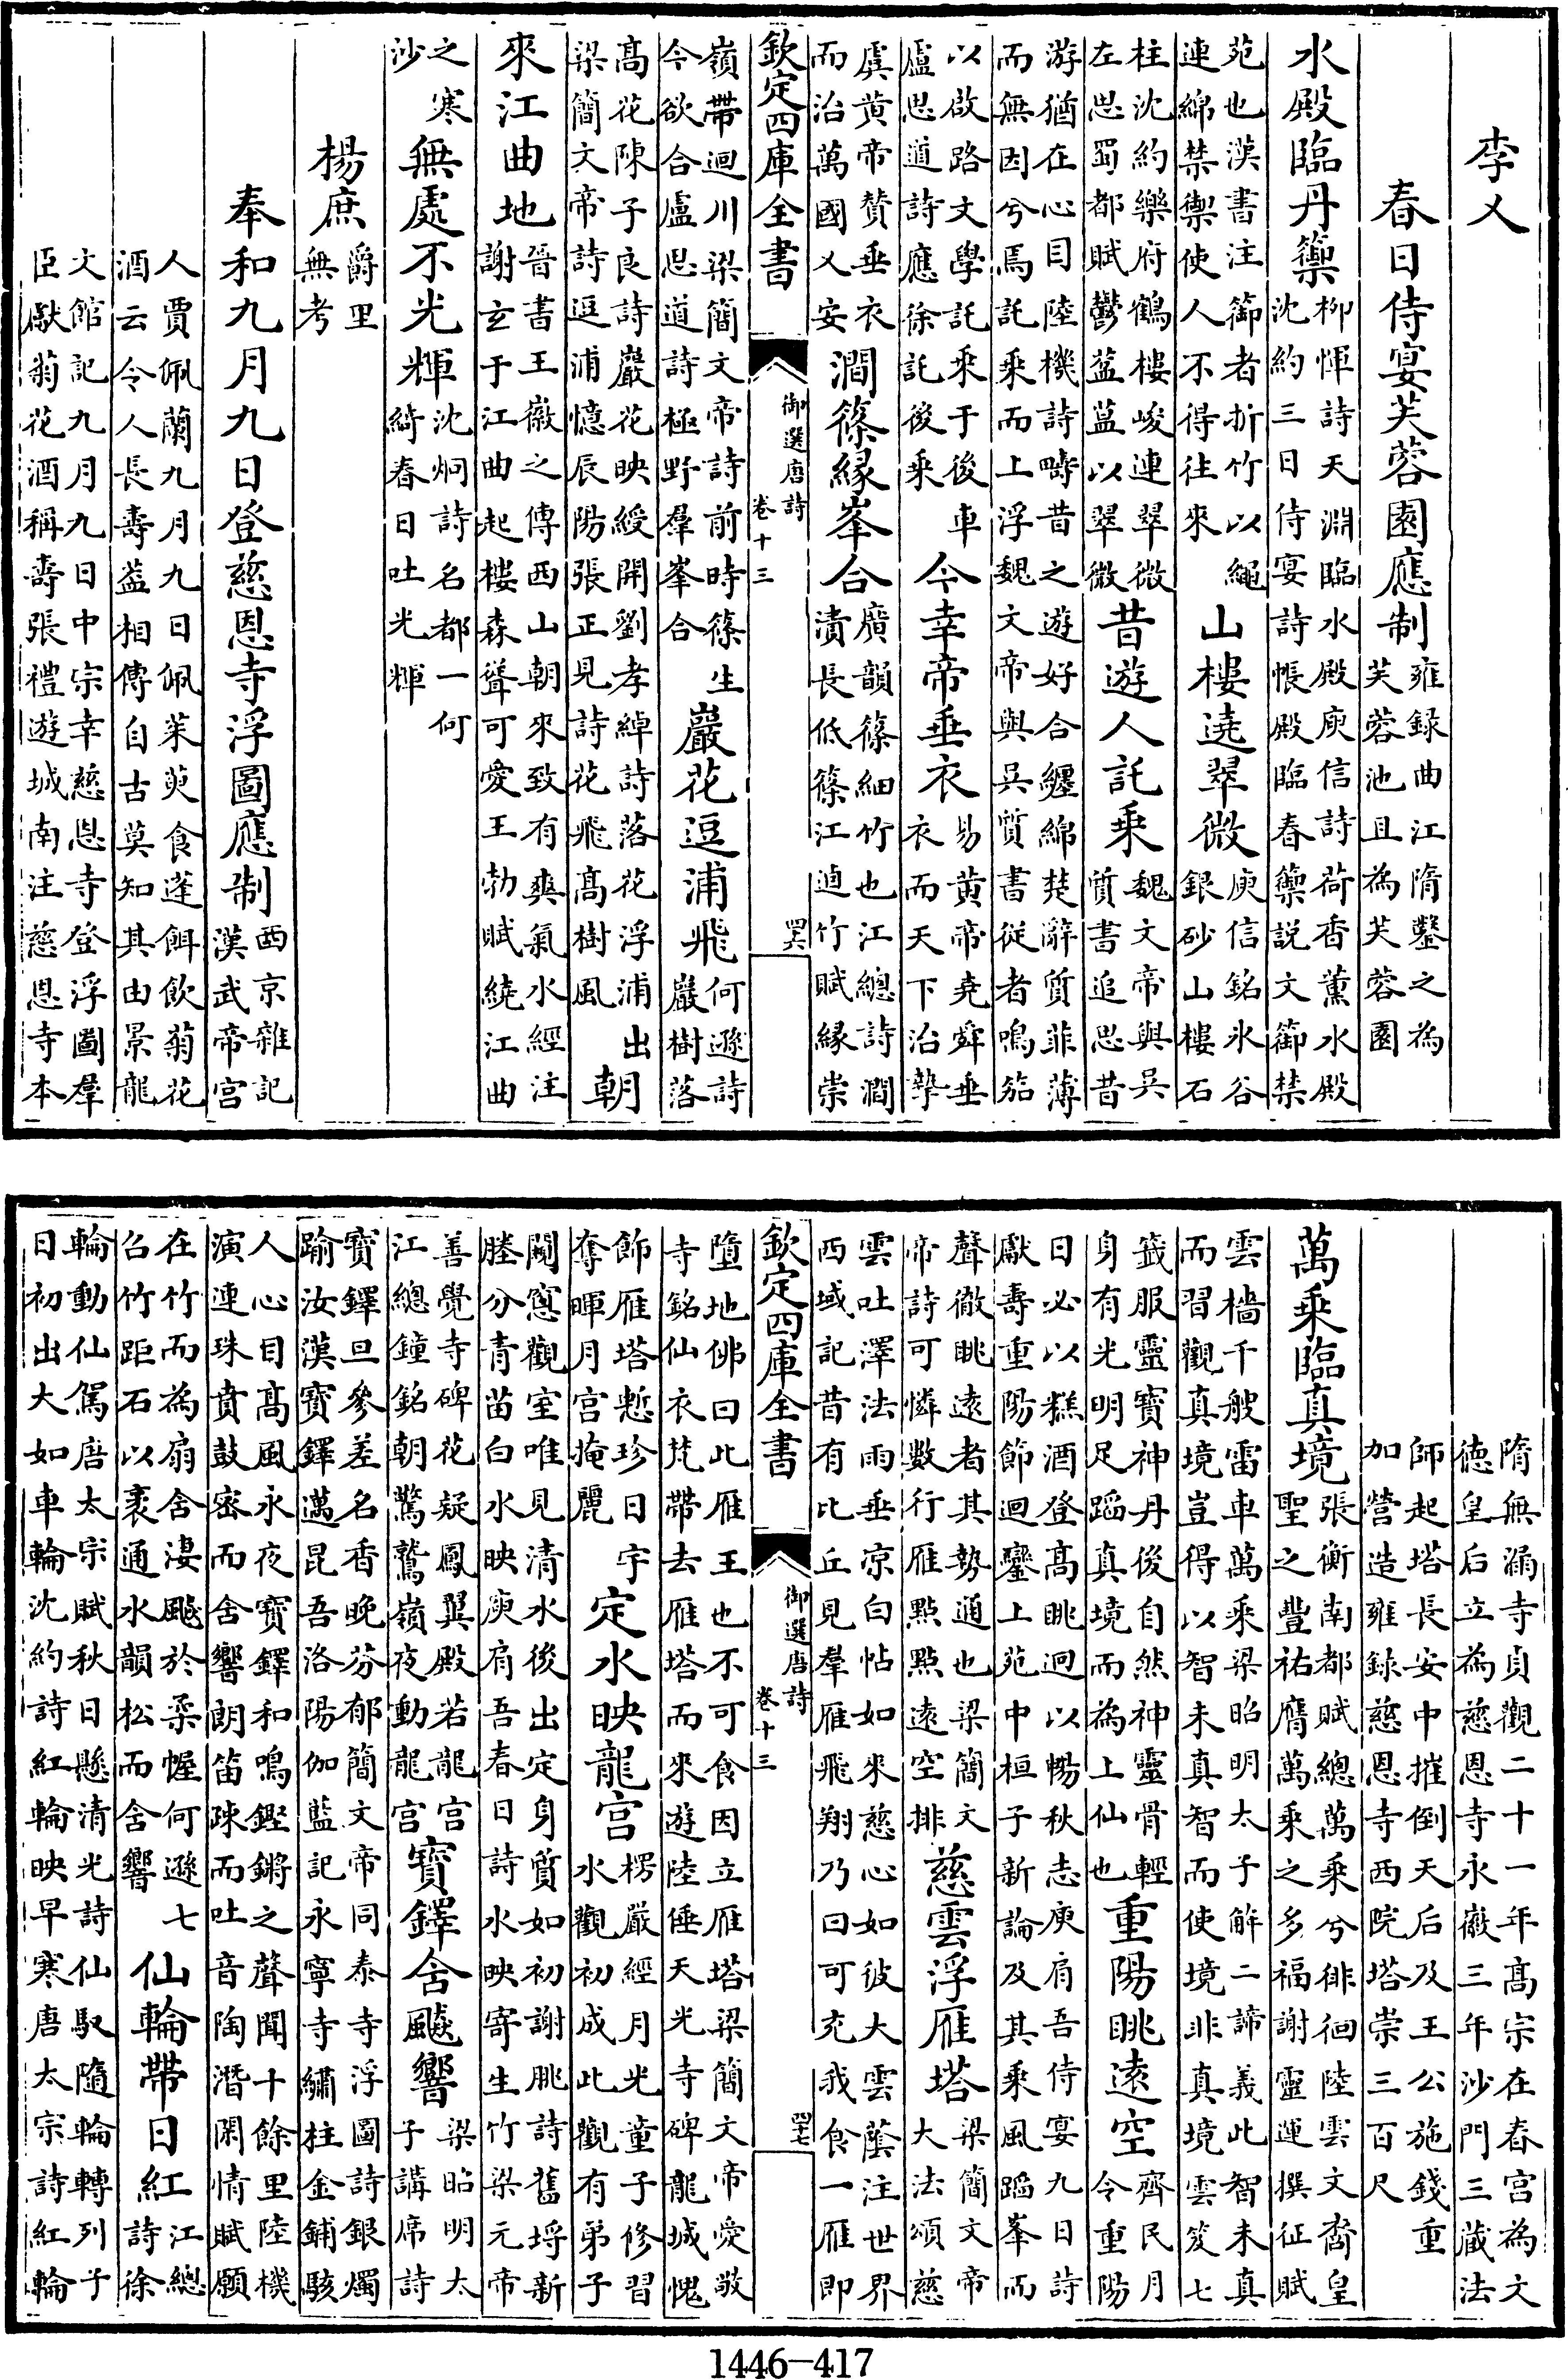 李乂
春日侍宴芙蓉園應制
雍録曲江隋鑿之為
芙蓉池且為芙蓉園
水殿臨丹籞
柳惲詩天淵臨水殿庾信詩荷香薰水殿
沈約三日侍宴詩帳殿臨春籞説文籞禁
苑也漢書注籞者折竹以繩
連綿禁禦使人不得往來
山樓遶翠微
庾信銘氷谷
銀砂山樓石
柱沈約樂府鶴樓峻連翠微
左思蜀都賦鬱葐蒀以翠微
昔遊人託乘
魏文帝與吳
質書追思昔
游猶在心目陸機詩疇昔之遊好合纒綿楚辭質菲薄
而無因兮焉託乘而上浮魏文帝與吳質書從者鳴笳
以啟路文學託乘于後車
盧思道詩應徐託後乘
今幸帝垂衣
易黄帝堯舜垂
衣而天下治摯
虞黄帝賛垂衣
而治萬國乂安
澗篠緣峯合
廣韻篠細竹也江總詩澗
漬長低篠江逌竹賦緣崇
欽定四庫全書
御選唐詩
卷十三
四六
嶺帶迴川梁簡文帝詩前時篠生
今欲合盧思道詩極野羣峯合
巖花逗浦飛
何遜詩
巖樹落
高花陳子良詩巖花映綬開劉孝綽詩落花浮浦出
梁簡文帝詩逗浦憶辰陽張正見詩花飛高樹風
朝
來江曲地
晉書王徽之傳西山朝來致有爽氣水經注
謝玄于江曲起樓森聳可愛王勃賦繞江曲
之寒
沙
無處不光輝
沈炯詩名都一何
綺春日吐光輝
楊庶
爵里
無考
奉和九月九日登慈恩寺浮圖應制
西京雜記
漢武帝宫
人賈佩蘭九月九日佩茱萸食蓬餌飲菊花
酒云令人長壽葢相傳自古莫知其由景龍
文館記九月九日中宗幸慈恩寺登浮圖羣
臣獻菊花酒稱壽張禮遊城南注慈恩寺本
隋無漏寺貞觀二十一年髙宗在春宫為文
德皇后立為慈恩寺永徽三年沙門三蔵法
師起塔長安中摧倒天后及王公施錢重
加營造雍録慈恩寺西院塔崇三百尺
萬乘臨真境
張衡南都賦總萬乘兮徘徊陸雲文裔皇
聖之豐祐膺萬乘之多福謝靈運撰征賦
雲檣千艘雷車萬乘梁昭明太子解二諦義此智未真
而習觀真境豈得以智未真智而使境非真境雲笈七
籖服靈寶神丹後自然神靈骨輕
身有光明足蹈真境而為上仙也
重陽眺遠空
齊民月
令重陽
日必以糕酒登髙眺迥以暢秋志庾肩吾侍宴九日詩
獻壽重陽節迴鑾上苑中桓子新論及其乘風蹈峯而
聲徹眺遠者其勢通也梁簡文
帝詩可憐數行雁點點遠空排
慈雲浮雁塔
梁簡文帝
大法頌慈
雲吐澤法雨垂凉白帖如來慈心如彼大雲蔭注世界
西域記昔有比丘見羣雁飛翔乃曰可充我食一雁即
欽定四庫全書
御選唐詩
卷十三
四七
墮地佛曰此雁王也不可食因立雁塔梁簡文帝愛敬
寺銘仙衣梵帶去雁塔而來遊陸倕天光寺碑龍城愧
飾雁塔慙珍日宇
奪暉月宫掩麗
定水映龍宫
楞嚴經月光童子修習
水觀初成此觀有弟子
闚窻觀室唯見清水後出定身質如初謝朓詩舊埒新
塍分青苗白水映庾肩吾春日詩水映寄生竹梁元帝
善覺寺碑花疑鳳翼殿若龍宫
江總鐘銘朝驚鷲嶺夜動龍宫
寳鐸含飇響
梁昭明太
子講席詩
寳鐸旦參差名香晚芬郁簡文帝同泰寺浮圖詩銀燭
踰汝漢寳鐸邁昆吾洛陽伽藍記永寧寺繡柱金鋪駭
人心目髙風永夜寳鐸和鳴鏗鏘之聲聞十餘里陸機
演連珠賁鼓宻而含響朗笛疎而吐音陶潛閑情賦願
在竹而為扇含淒飇於柔幄何遜七
召竹距石以裹通水韻松而含響
仙輪帶日紅
江總
詩徐
輪動仙駕唐太宗賦秋日懸清光詩仙馭隨輪轉列子
日初出大如車輪沈約詩紅輪映早寒唐太宗詩紅輪
1446-417